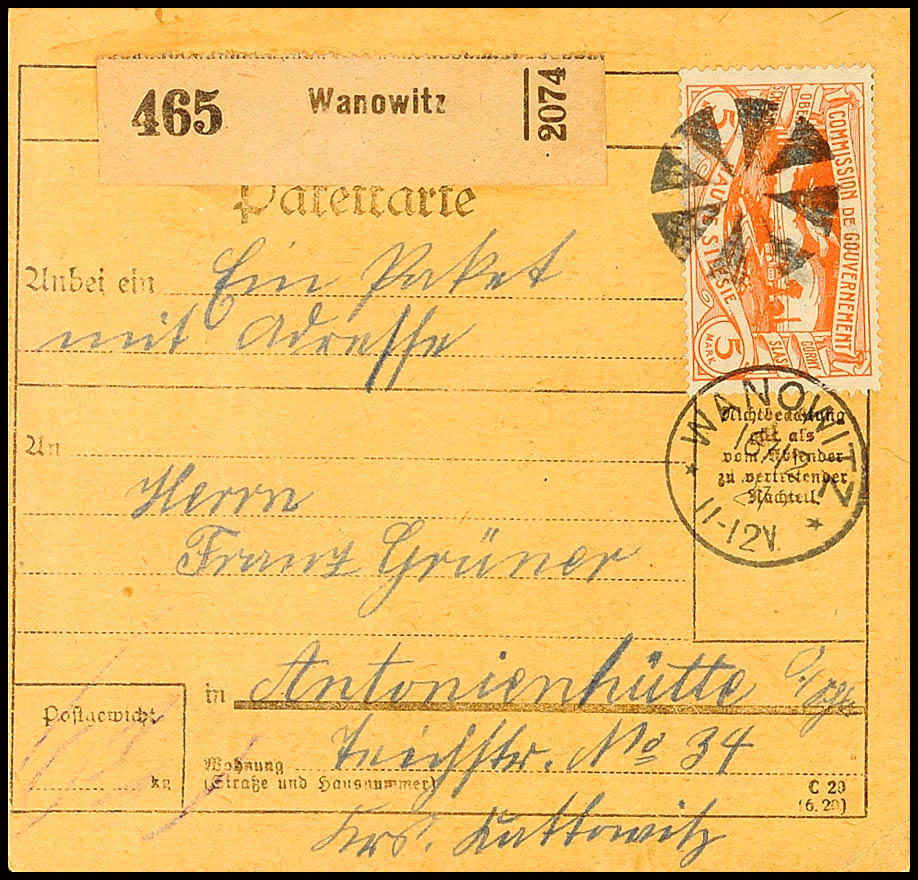 465 Wanowitz 2074
Paketkarte
COMMISSION DE GOUVERNEMENT
HAUTE SILESIE
5 5
MARK
GORNY
Anbei ein Ein Paket
mit Adresse
WANOWITZ
11-12V.
Nichtbeachtung
gilt als
vom Absender
zu vertretender
Nachteil.
An
Herrn
Franz Grüner
in Antonienhütte O/Schl.
Postgewicht
kg
Wohnung
(Straße und Hausnummer)
Teichstr. No 34
C 20
(6.20)
Krs. Kattowitz